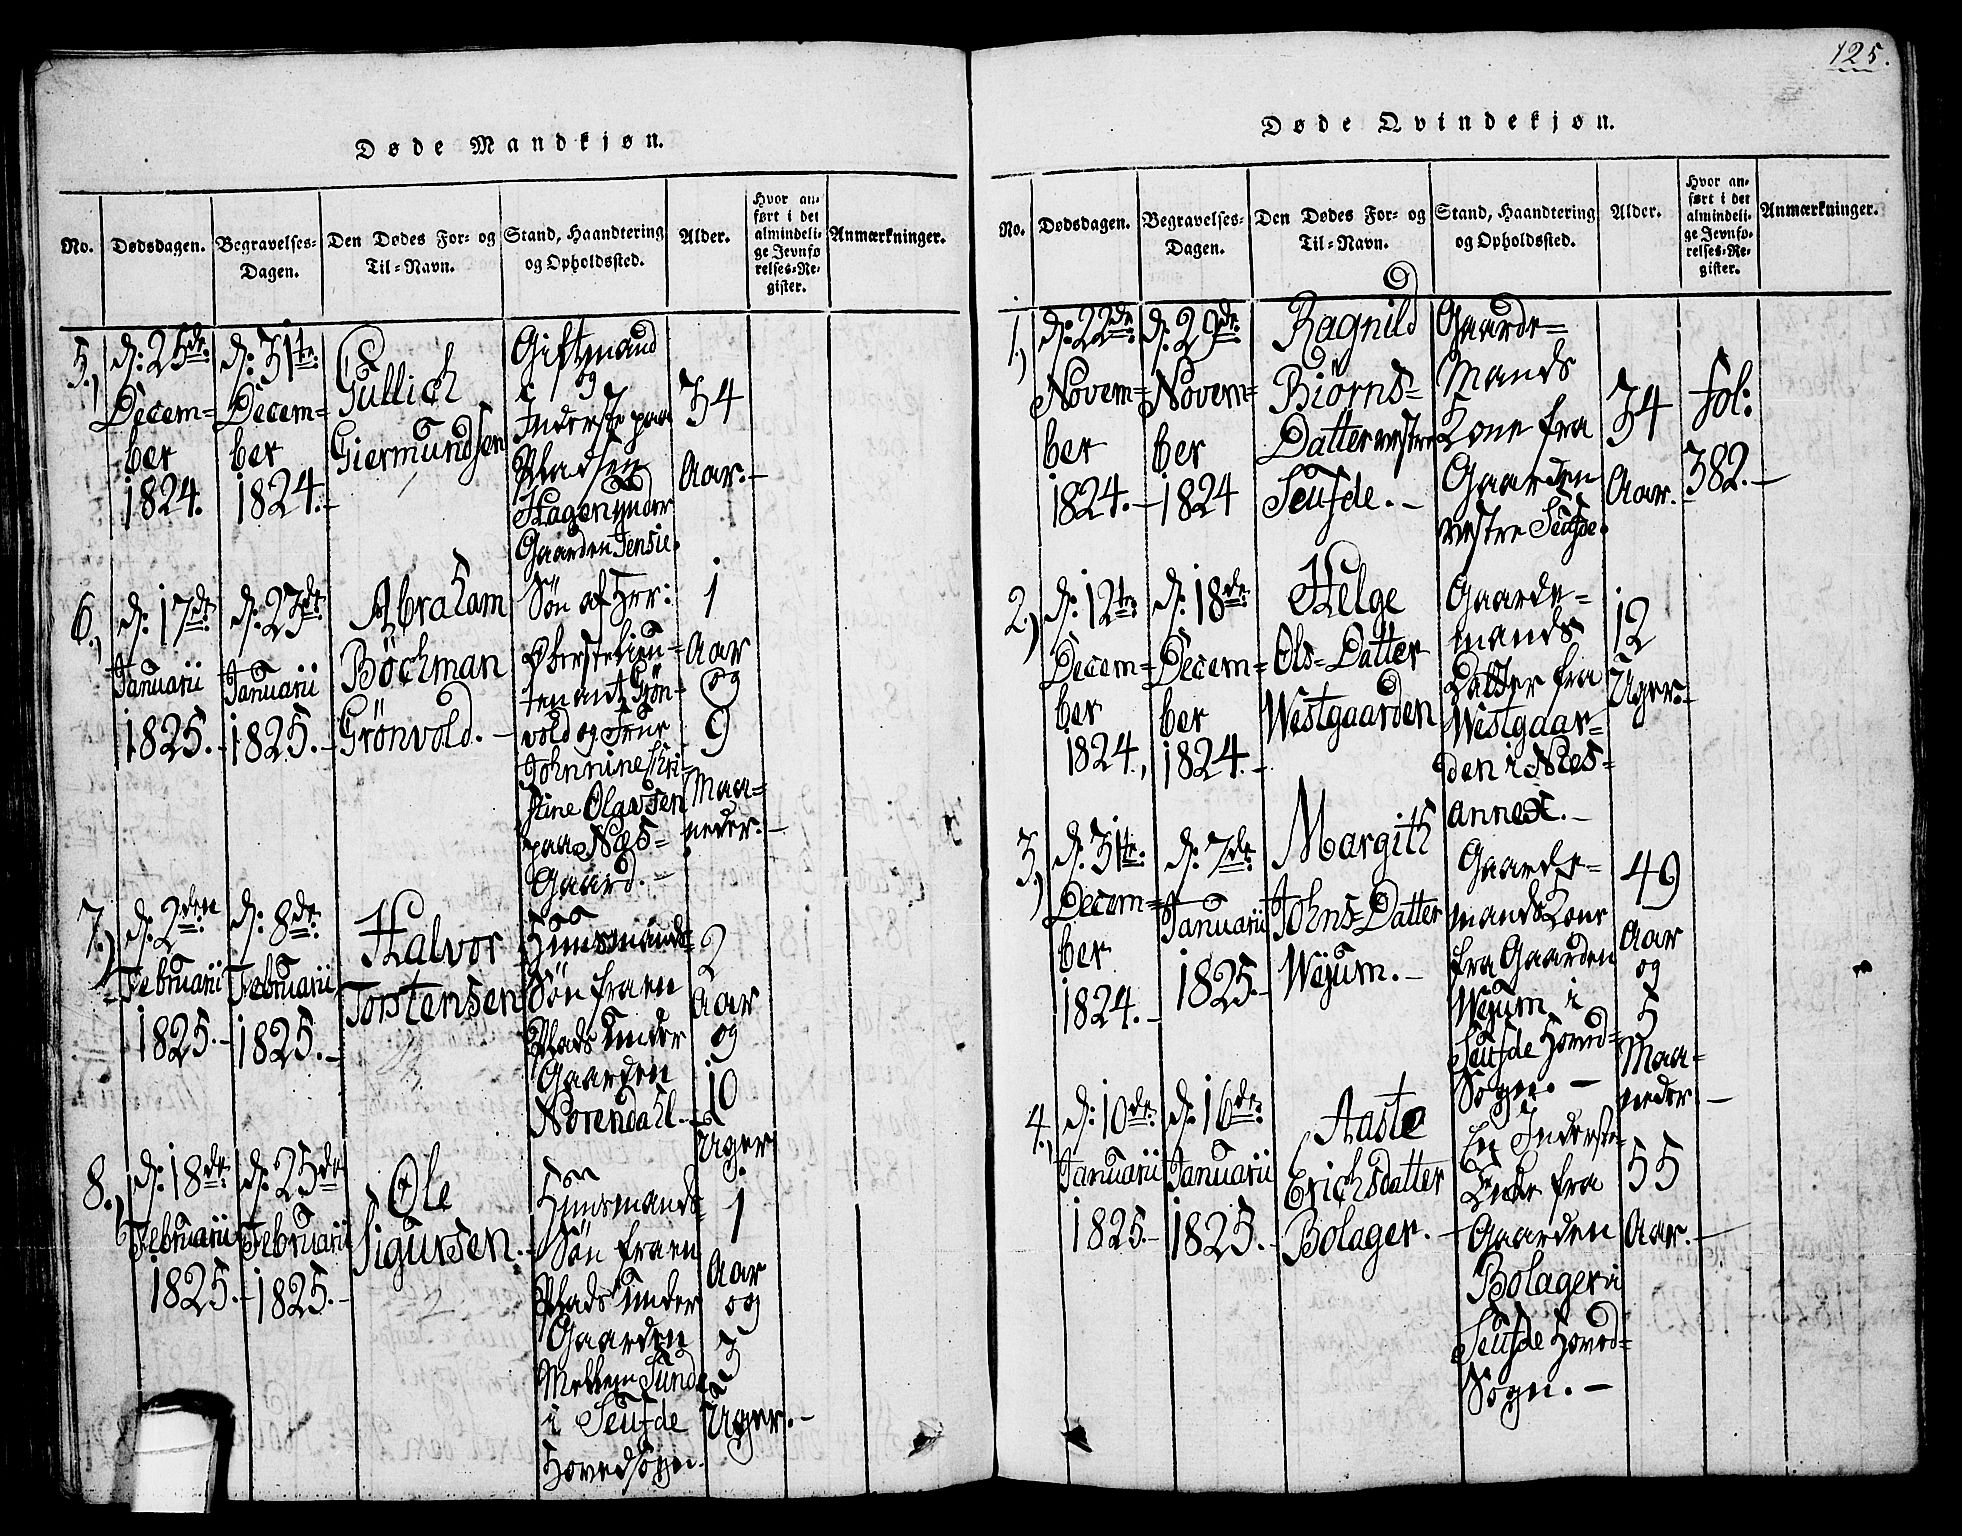 125.
Døde Mandkjøn.
No.
Dødsdagen.
Begravelses-
Dagen.
Den Dødes For- og
Til-Navn.
Stand, Haandtering
og Opholdssted.
Alder.
Hvor an-
ført i det
almindeli-
ge Jevnfø
relses-Re-
gister.
Anmærkninger.
5.,
d: 25de
Decem=
ber
1824.
d: 31te:
Decem=
ber
1824.-
Gullich
Giermundsen
Giftmand
og
Inderste paa
Pladsen
Hagen under
Gaarden Jensie.
34
Aar.-
6.,
d: 17de
Januarii
1825.-
d: 23de
Januarii
1825.-
Abraham
Böchman
Grönvold.-
Søn af Her:
Øberstelieu-
tenant Grön-
vold og Frue
Johnnine Chri-
stine Olavsen
paa Næs-
Gaard.-
1
Aar
og
9
Maa=
neder.-
7.,
d: 2den
Februarii
1825.-
d: 8de
Februarii
1825.-
Halvor
Torstensen
Huusmands-
Søn fra en
Plads under
Gaarden
Norendahl.-
2
Aar
og
10
Uger
8.,
d: 18de
Februarii
1825.-
d: 25de
Februarii
1825.-
Ole
Sigursen.
Huusmands-
Søn fra en
Plads under
Gaarden
Mellem Sunde
i Seufde
Hovedsogn.
1
Aar
og
3
Uger.-
Døde Qvindekjøn.
No.
Dødsdagen.
Begravelses-
Dagen.
Den Dødes For- og
Til-Navn.
Stand, Haandtering
og Opholdssted.
Alder.
Hvor an-
ført i det
almindeli-
ge Jevnfø-
relses-Re-
gister.
Anmærkninger.
1.,
d: 22de
Novem=
ber
1824.-
d: 29de
Novem=
ber
1824
Ragnild
Biörns=
Datter vestre
Seufde.-
Gaarde=
Mands
Kone fra
Gaarden
vestre Seufde.
34
Aar.-
fol:
382.-
2.,
d: 12te
Decem=
ber
1824.,
d: 18de
Decem=
ber
1824.-
Helge
Ols=Datter
Westgaarden
Gaarde=
mands
Datter fra
Westgaar-
den i Næs-
annex.-
12
Uger.-
3.,
d: 31te
Decem=
ber
1824.-
d: 7de
Januarii
1825.-
Margith
Johns=Datter
Wejum.-
Gaarde=
mands Kone
fra Gaarden
Wejum i
Seufde Hoved=
Sogn.-
49
Aar
og
5
Maa=
neder.-
4.,
d: 10de
Januarii
1825.-
d: 16de
Januarii
1825.-
Aaste
Erichsdatter
Bolager.-
En Inderste
Enke fra
Gaarden
Bolager i
Seufde Hoved-
Sogn.-
55
Aar.-